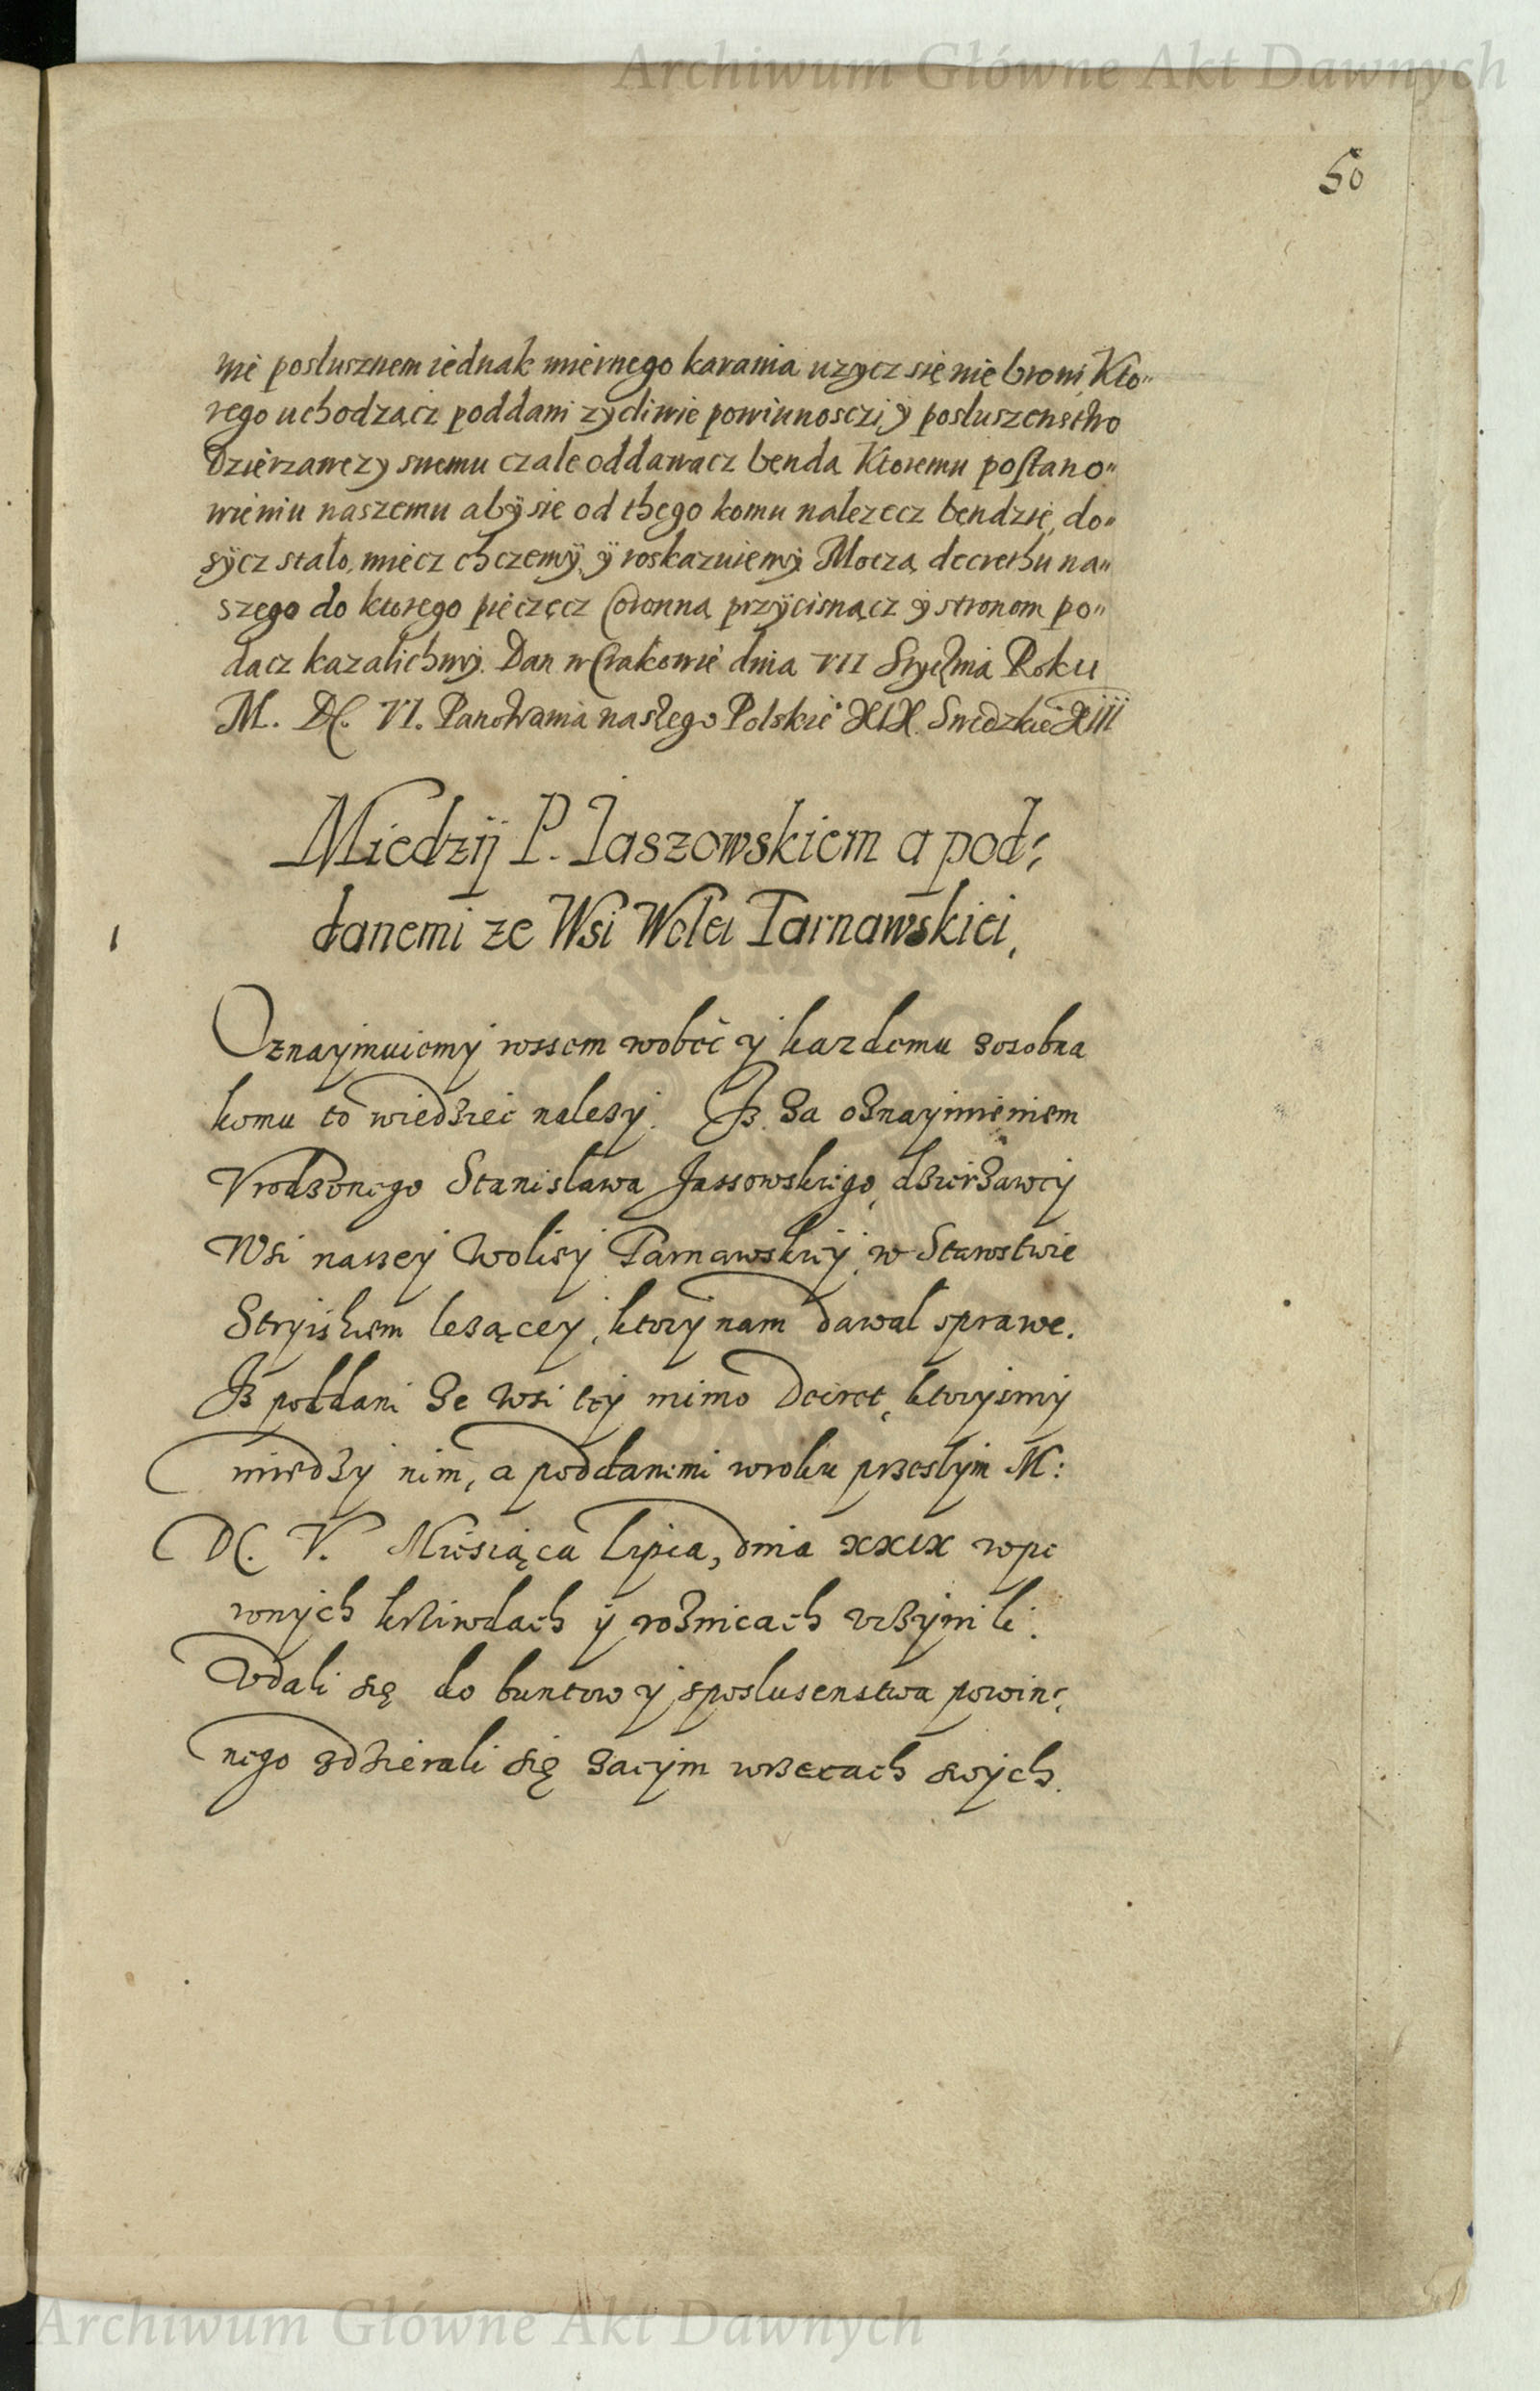 Archiwum Główne Akt Dawnych
50
nie posłusznem iednak miernego karania uzycz się nie broni, Kto„
rego uchodzącz poddani zycliwie powinnosczi y posłuszenstwo
Dzierzawczy swemu czale oddawacz benda Ktoremu postano„
wieniu naszemu aby sie od thego komu nalezecz bendzie, do„
sycz stało, miecz chczemy, y roskazuiemy. Moczą decrethu na„
szego do ktorego pieczęcz Coronną przycisnącz y stronom po„
dacz kazalichmy. Dan w Crakowie dnia VII Stycznia Roku
M. DC. VI. Panowania naszego Polskie° XIX. Swedzkie° XIII
Miedzij P. Iaszowskiem a pod:
danemi ze Wsi Wolei Tarnawskiei,
Oznaymuiemy wssem wobec y kazdemu zosobna
komu to wiedziec nalezy. Iz za oznaymieniem
Vrodzonego Stanisława Jassowskiego, dzierzawcy
Wsi nassey Woliey Tarnawskiey, w Starostwie
Stryiskiem lezącey, ktory nam dawał sprawe.
Iz poddani ze wsi tey mimo Decret, ktorysmy
miedzy nim, a poddanemi wroku przeslym M:
DC. V. Miesiąca Lipca, dnia XXIX wpe
wnych krziwdach y roznicach vczynili:
Vdali się do buntow y sposlusenstwa powin:
nego zdzierali się zaczym wrzecach swych.
51
Archiwum Główne Akt Dawnych